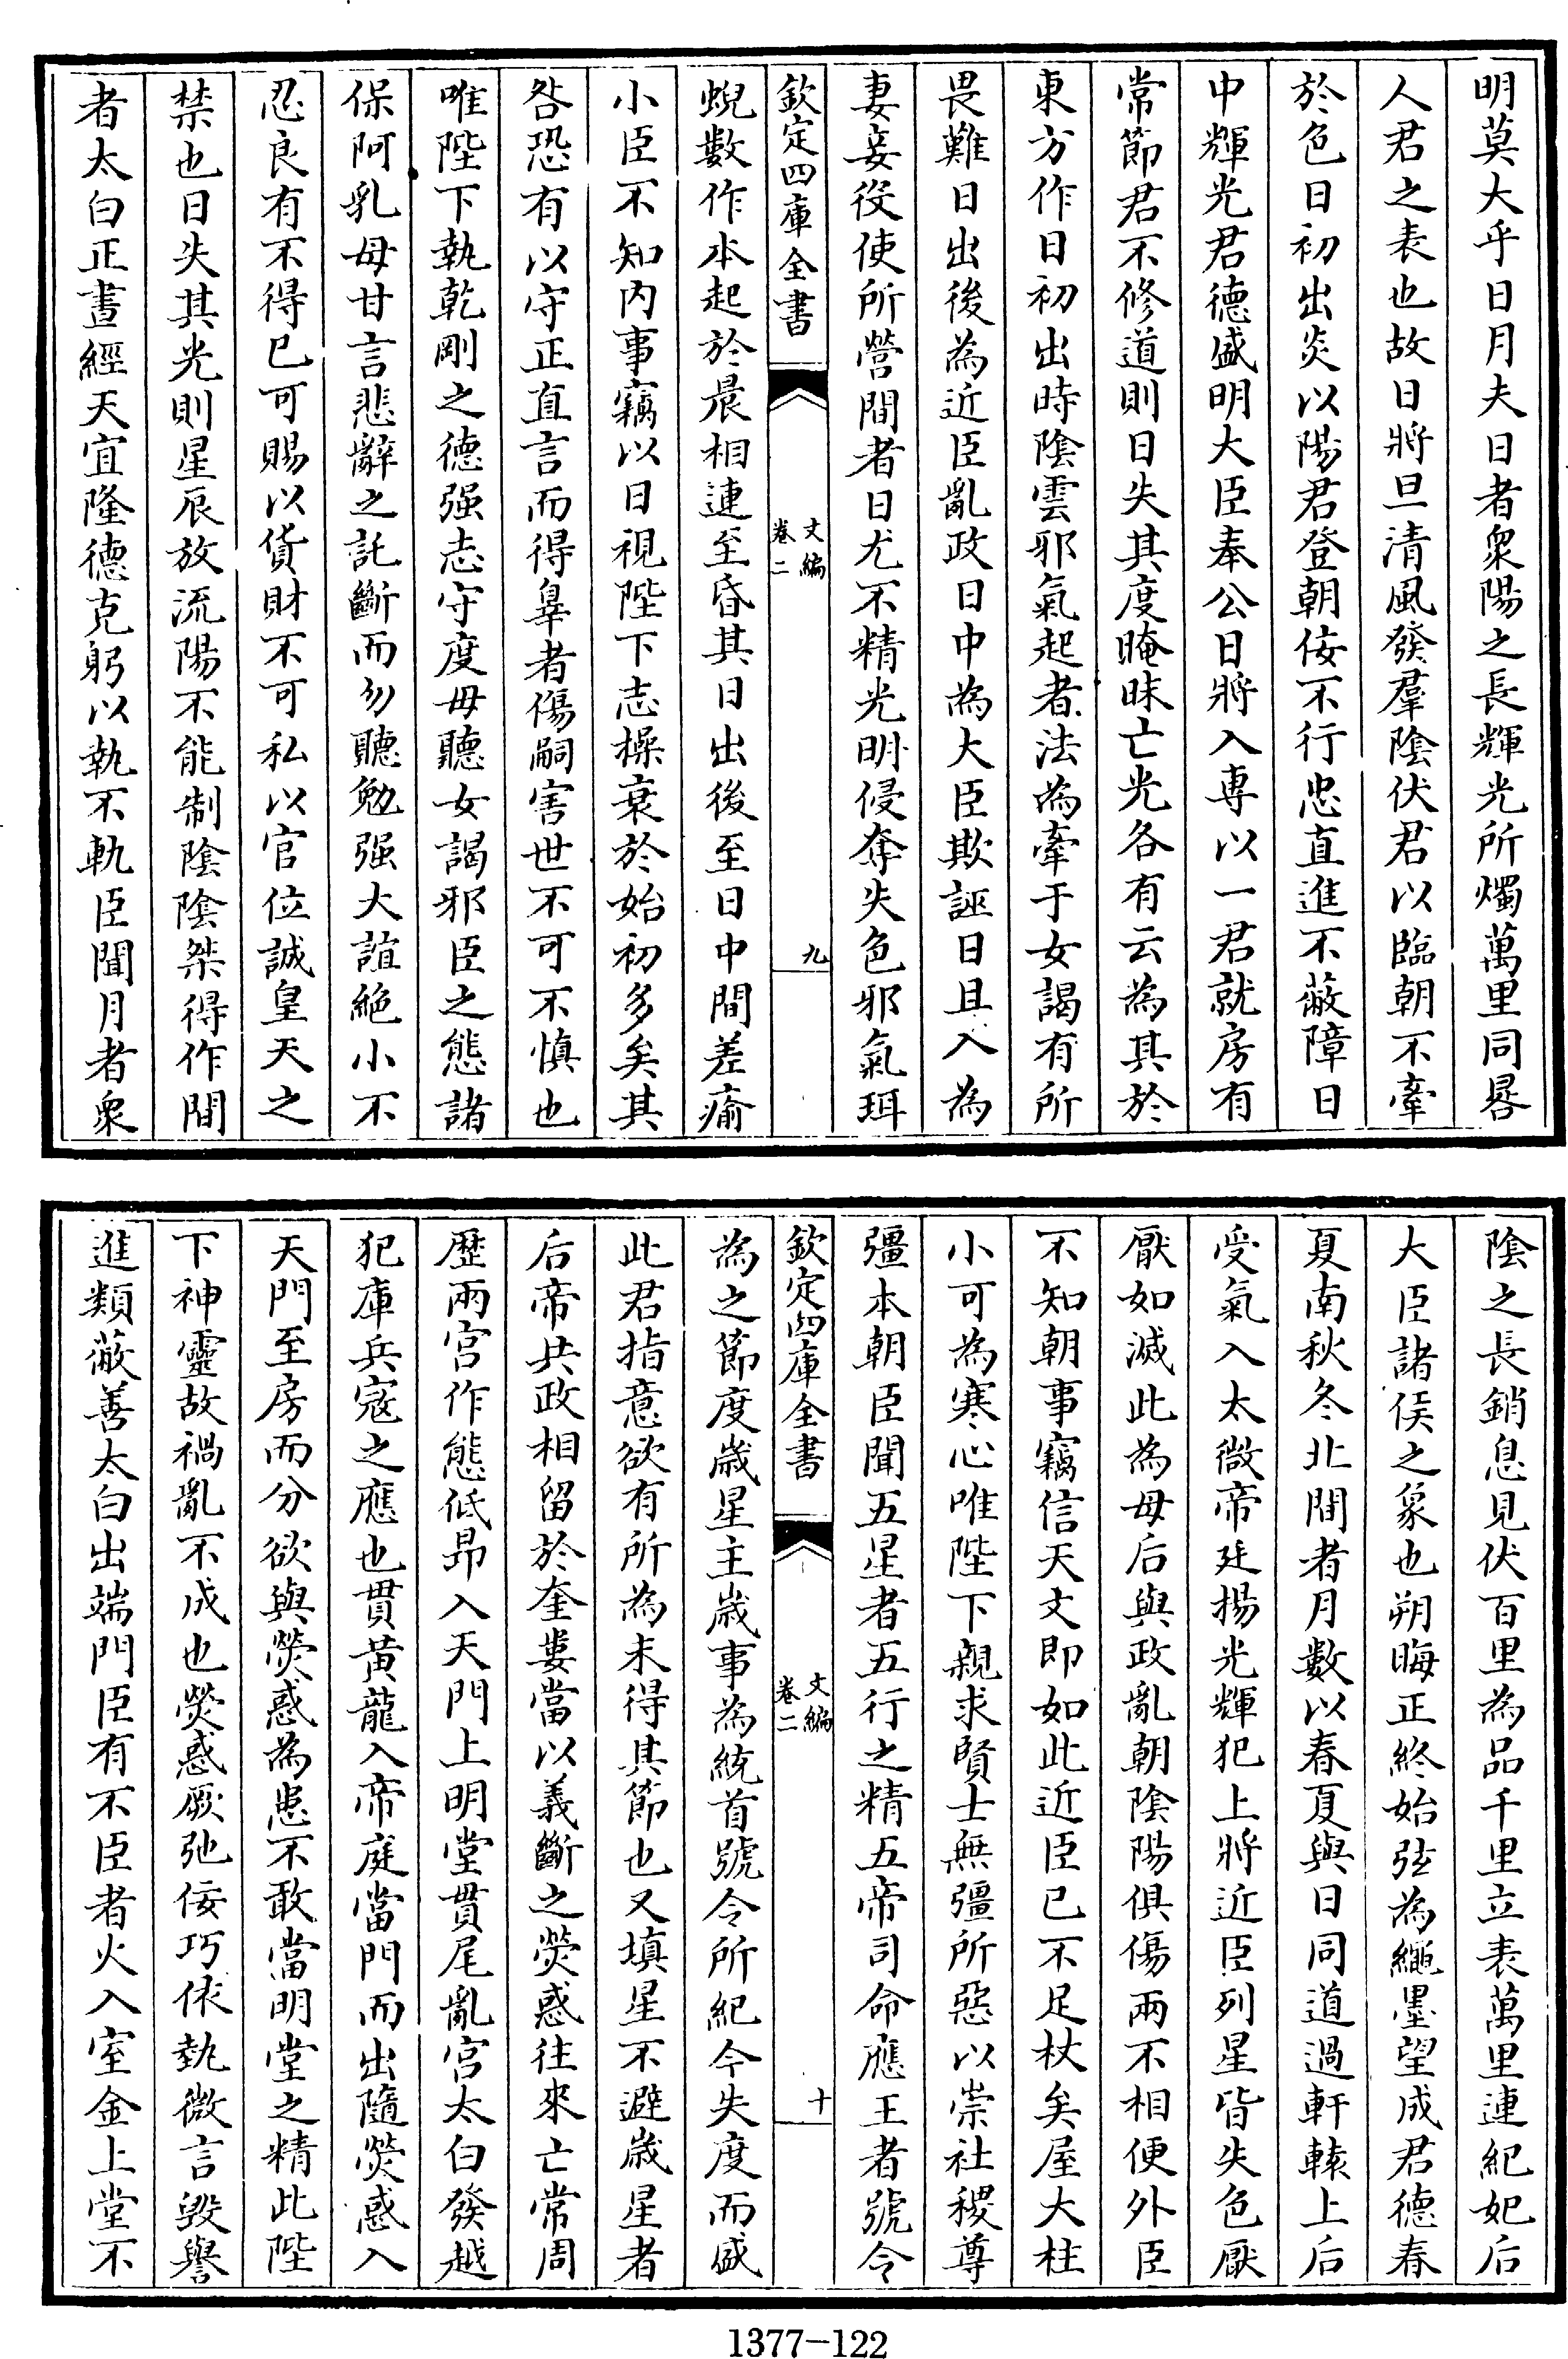 明莫大乎日月夫日者衆陽之長輝光所燭萬里同晷
人君之表也故日將旦清風發羣陰伏君以臨朝不牽
於色日初出炎以陽君登朝佞不行忠直進不蔽障日
中輝光君德盛明大臣奉公日將入專以一君就房有
常節君不修道則日失其度晻昧亡光各有云為其於
東方作日初出時陰雲邪氣起者法為牽于女謁有所
畏難日出後為近臣亂政日中為大臣欺誣日且入為
妻妾役使所營間者日尤不精光明侵奪失色邪氣珥
欽定四庫全書
文編
卷二
九
蜺數作本起於晨相連至昏其日出後至日中間差瘉
小臣不知内事竊以日視陛下志操衰於始初多矣其
咎恐有以守正直言而得辠者傷嗣害世不可不慎也
唯陛下執乾剛之德强志守度毋聽女謁邪臣之態諸
保阿乳母甘言悲辭之託斷而勿聽勉强大誼絶小不
忍良有不得已可賜以貨財不可私以官位誠皇天之
禁也日失其光則星辰放流陽不能制陰陰桀得作間
者太白正晝經天宜隆德克躬以執不軌臣聞月者衆
陰之長銷息見伏百里為品千里立表萬里連紀妃后
大臣諸侯之象也朔晦正終始弦為繩墨望成君德春
夏南秋冬北間者月數以春夏與日同道過軒轅上后
受氣入太微帝廷揚光輝犯上將近臣列星皆失色厭
厭如滅此為母后與政亂朝陰陽俱傷兩不相便外臣
不知朝事竊信天文即如此近臣已不足杖矣屋大柱
小可為寒心唯陛下親求賢士無彊所惡以崇社稷尊
彊本朝臣聞五星者五行之精五帝司命應王者號令
欽定四庫全書
文編
卷二
十
為之節度歲星主歲事為統首號令所紀今失度而盛
此君指意欲有所為未得其節也又填星不避歲星者
后帝共政相留於奎婁當以義斷之熒惑往來亡常周
歴兩宫作態低昂入天門上明堂貫尾亂宫太白發越
犯庫兵宼之應也貫黄龍入帝庭當門而出隨熒惑入
天門至房而分欲與熒惑為患不敢當明堂之精此陛
下神靈故禍亂不成也熒惑厥弛佞巧依埶微言毀譽
進類蔽善太白出端門臣有不臣者火入室金上堂不
1377-122